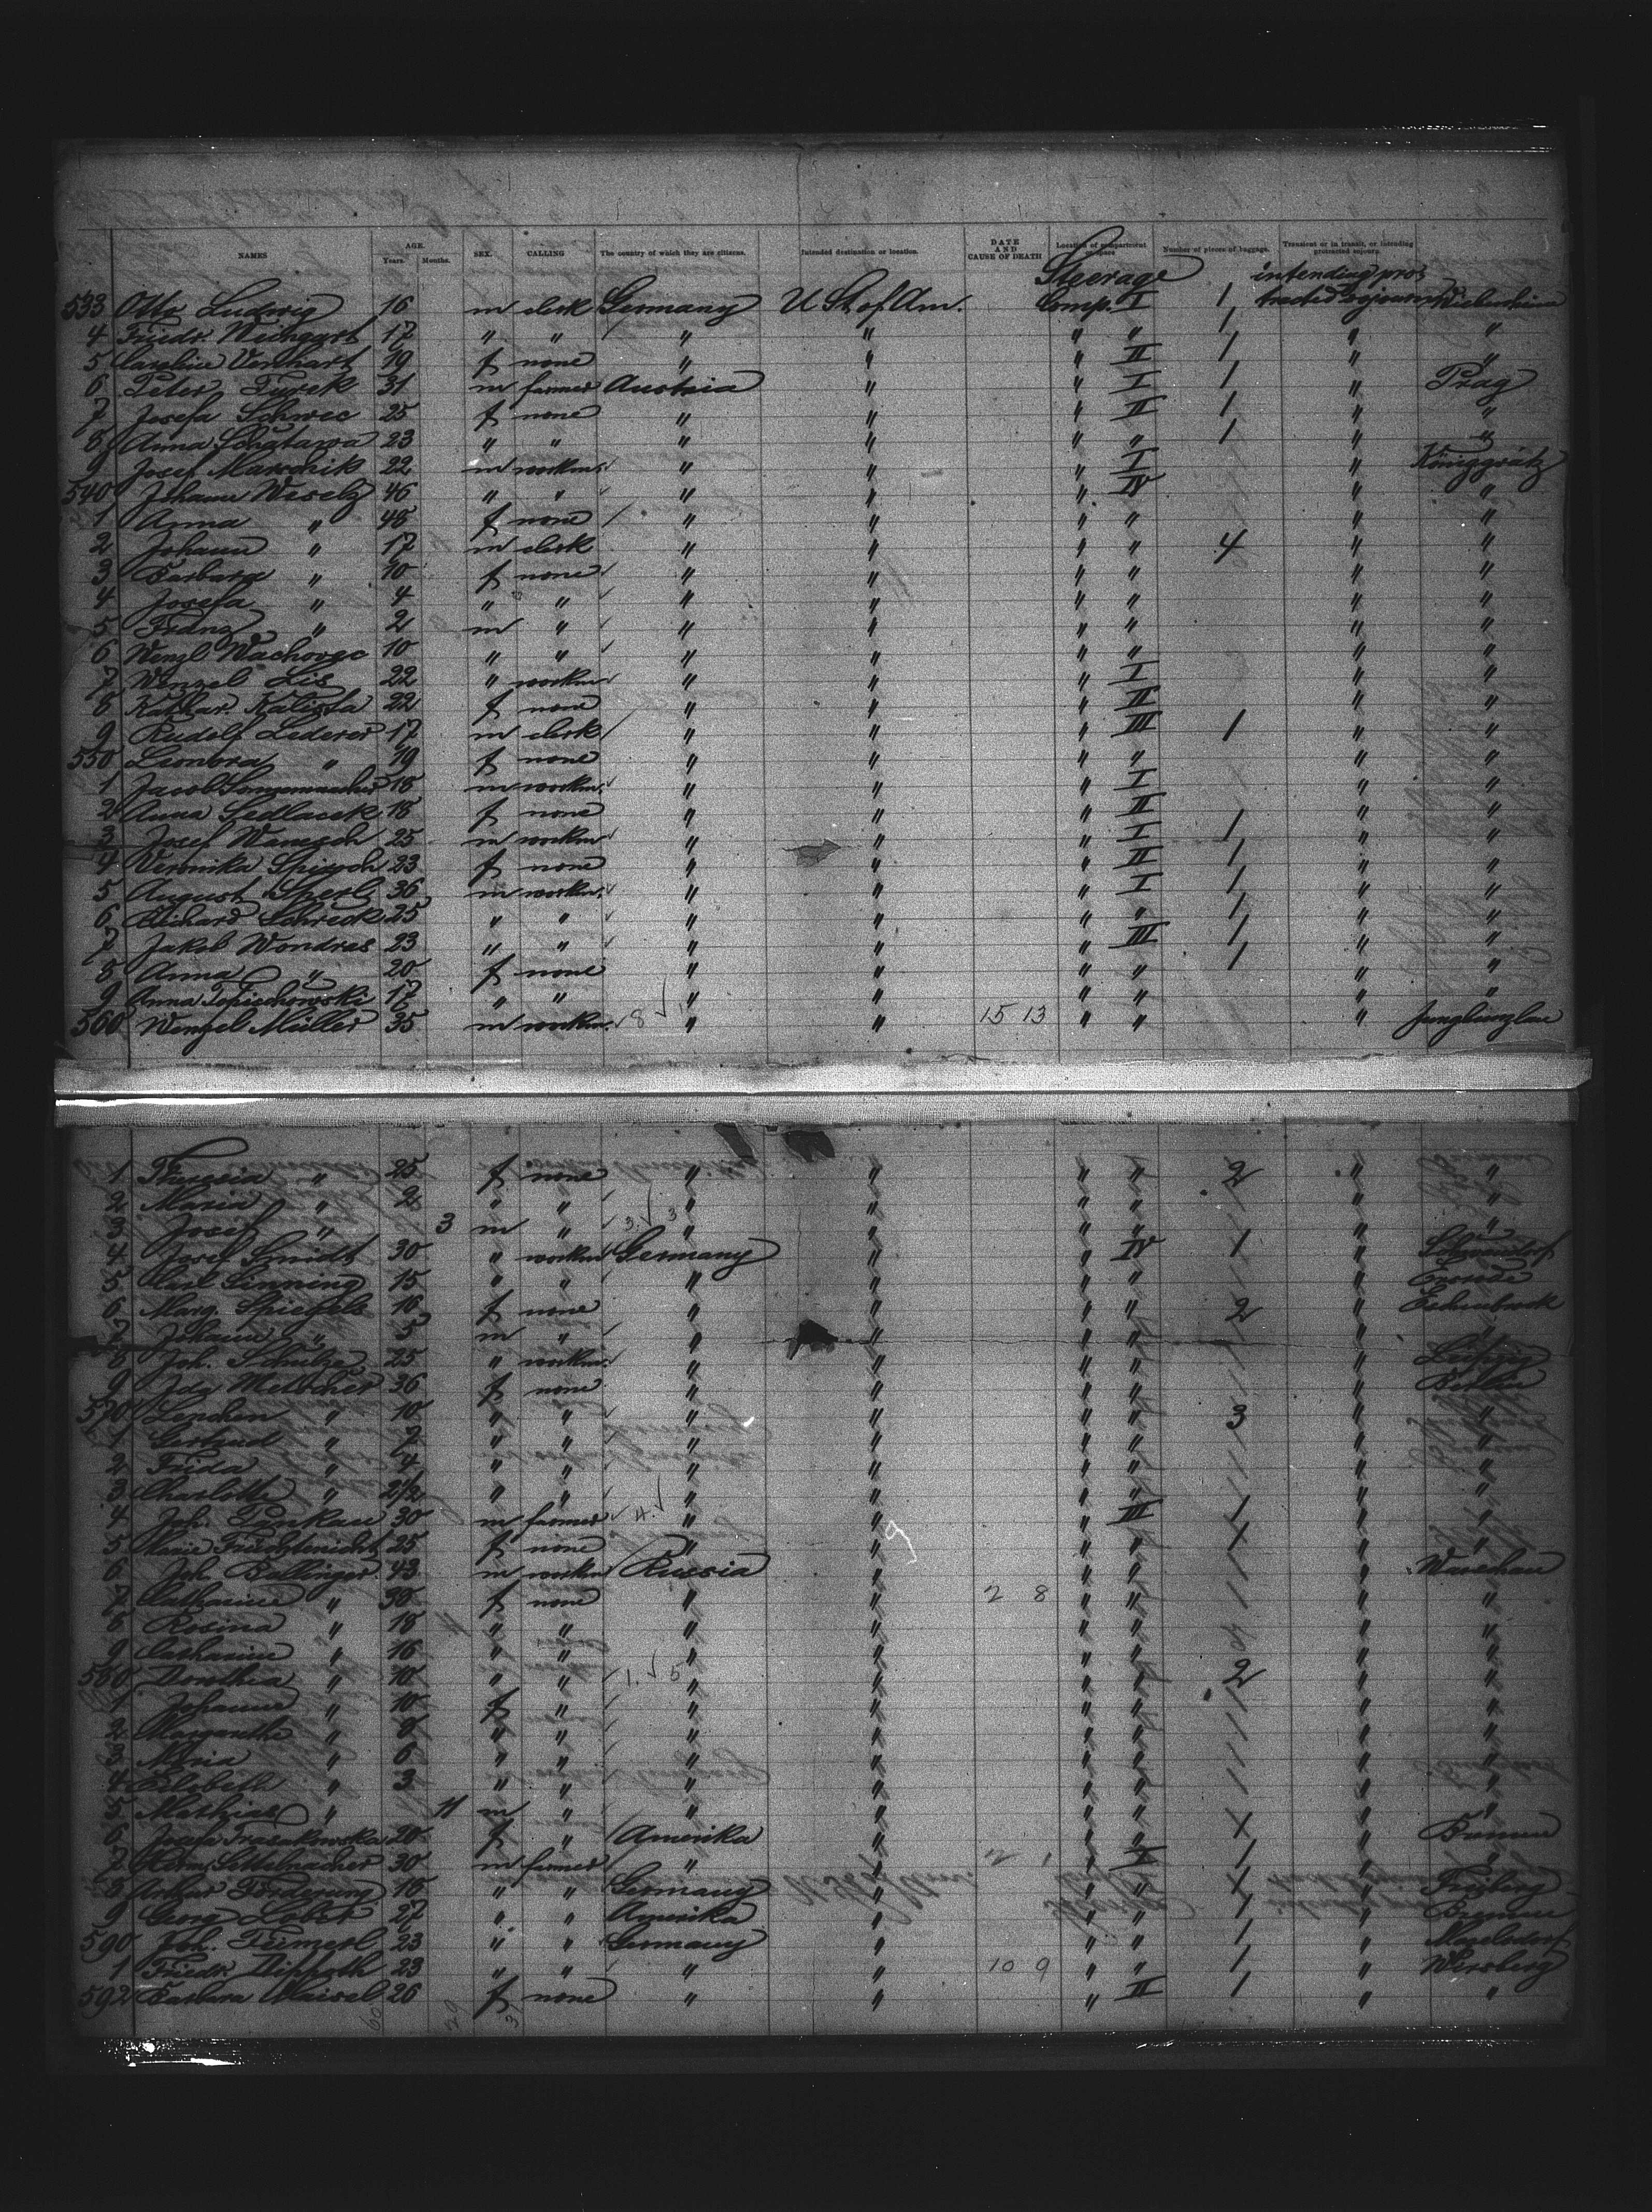 NAMES AGE. Years. Months. SEX. CALLING The country of which they are citizens. Intended destination or location. DATE AND CAUSE OF DEATH Location of compartment or space Number of pieces of luggage. Transient or in transit, or intending protracted sojourn.
Steerage intending pro-
533 Otto Ludwig 16 m clerk Germany U St. of Am. Comp. I 1 tracted sojourn
4 Friedr. Weingart 17 " " " " " " 1 " "
5 Caroline 19 f none " " " II 1 " "
6 Peter Turek 31 m farmer Austria " " I 1 " Prag
7 Josefa Schwec 25 f none " " " II 1 " "
8 Anna 23 " " " " " " 1 " "
9 Josef 22 m workm. " " " I " Königgrätz
540 Johann Wesely 46 " " " " " IV " "
1 Anna " 48 f none " " " " " "
2 Johann " 17 m clerk " " " " 4 " "
3 Barbara " 10 f none " " " " " "
4 Josefa " 4 " " " " " " " "
5 Franz " 2 m " " " " " " "
6 Wenzl Wachovec 10 " " " " " " " "
7 Wenzel Lis 22 " workm " " " I " "
8 Kathar. Kalista 22 f none " " " II " "
9 Rudolf Lederer 17 m clerk " " " III 1 " "
550 Leonora " 19 f none " " " " " "
1 Jacob 18 m workm. " " " I " "
2 Anna Sedlacek 18 f none " " " II " "
3 Josef 25 m workm " " " I 1 " "
4 Veronika 23 f none " " " II 1 " "
5 August Sperl 36 m workm. " " " I 1 " "
6 Richard Schreck 25 " " " " " " 1 " "
7 Jakob Wondras 23 " " " " " III 1 " "
8 Anna " 20 f none " " " " 1 " "
9 Anna 17 " " " " " " " "
560 Wenzel Müller 35 m workm. 8 " " 15 13 " " " Jungbunzlau
1 Theresia " 25 f none " " " " 2 " "
2 Maria " 2 " " " " " " " "
3 Josef " 3 m " 3 3 " " " " " "
4 Josef Smidt 30 " workm Germany " " IV 1 " Schwandorf
5 Carl Sinning 15 " " " " " " "
6 Marg. Spiegel 16 f none " " " " 2 "
7 Johann " 5 m " " " " " " "
8 Joh. Schulze 25 " workm. " " " " " Leipzig
9 Ida 36 f none " " " " " Berlin
570 Lenchen " 10 " " " " " " 3 " "
1 Gertrud " 7 " " " " " " " "
2 Frida " 4 " " " " " " " "
3 Charlotte " 2 1/2 " " " " " " " "
4 Joh. 30 m farmer 4 " " " III 1 " "
5 Marie 25 f none " " " " 1 " "
6 Joh. Ballinger 43 m workm Russia " " " " Warschau
7 Catharine " 30 f none " " 2 8 " " " "
8 Rosina " 18 " " " " " " " "
9 Catharine " 16 " " " " " " " "
580 Dorothea " 10 " " 1 5 " " " " 2 " "
1 Johanne " 10 f " " " " " " "
2 Margaretha " 8 " " " " " " " "
3 Maria " 6 " " " " " " " "
4 Elisabeth " 3 " " " " " " " "
5 Mathias " 11 m " " " " " " "
6 Josefa 20 f " Amerika " " " 1 " Bremen
7 Herm. 30 m farmer " " 2 1 " 1 " "
8 Arthur 18 " " Germany " " " 1 " Freiberg
9 Georg 27 " " Amerika " " " 1 " Bremen
590 Joh. 23 " " Germany " " " 1 "
1 Friedr. 23 " " " " 10 9 " " 1 " Wirsberg
592 Barbara Meisel 26 f none " " " II 1 " "